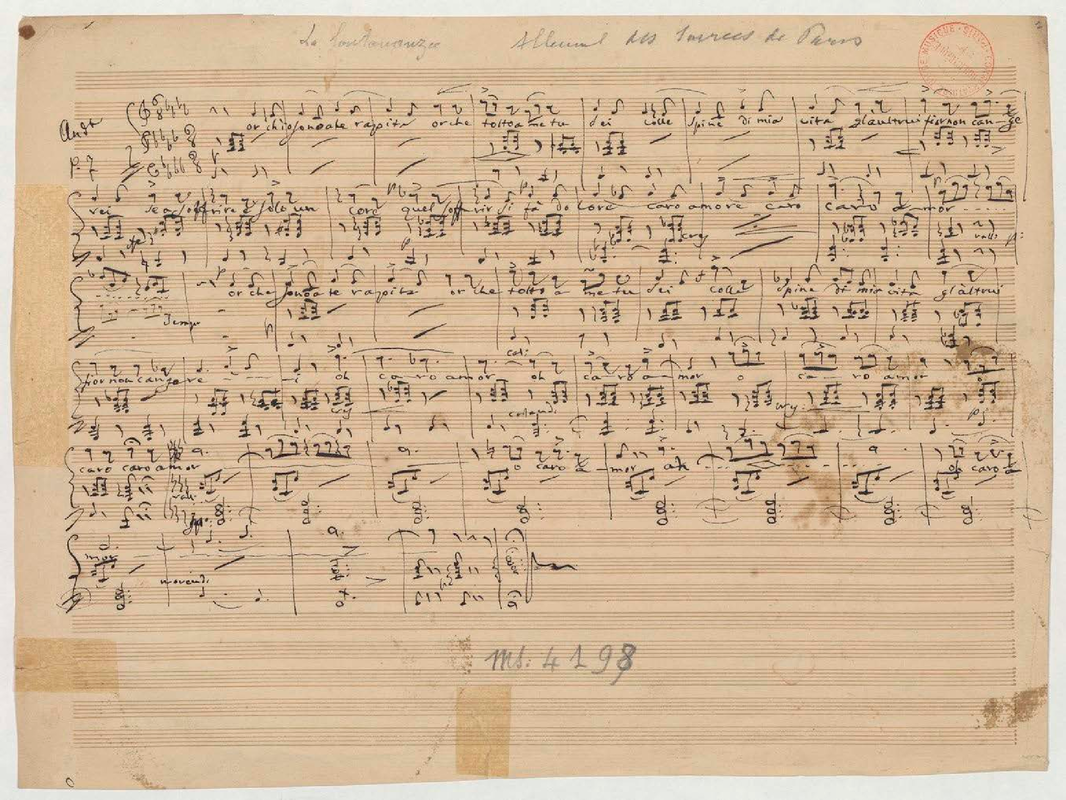 La Lontananza Album des Soirées de Paris
Andt
or chio sono a te rapita or che tolto a me tu sei colle spine di mia vita gl'altrui fior non cange
rei se a soffrire è solo un core quel soffrir si fà dolore caro amore caro caro amor
rall:
or che sono a te rapita or che tolto a me tu sei colle spine di mia vita gl'altrui
Tempo
fior non cangere i oh caro amor oh caro amor o caro amor
cal:
caro caro amor o caro amor ah o caro a
rall:
mor
morendo
Ms. 4198